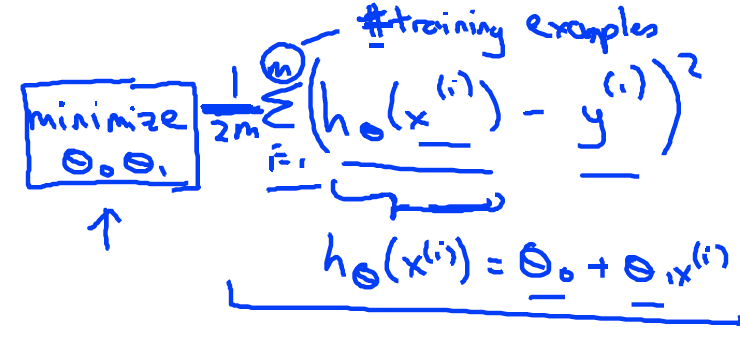 #training examples
minimize θ₀ θ₁ 1/2m Σ i=1 m (hθ(x⁽ⁱ⁾) - y⁽ⁱ⁾)²
hθ(x⁽ⁱ⁾) = θ₀ + θ₁x⁽ⁱ⁾